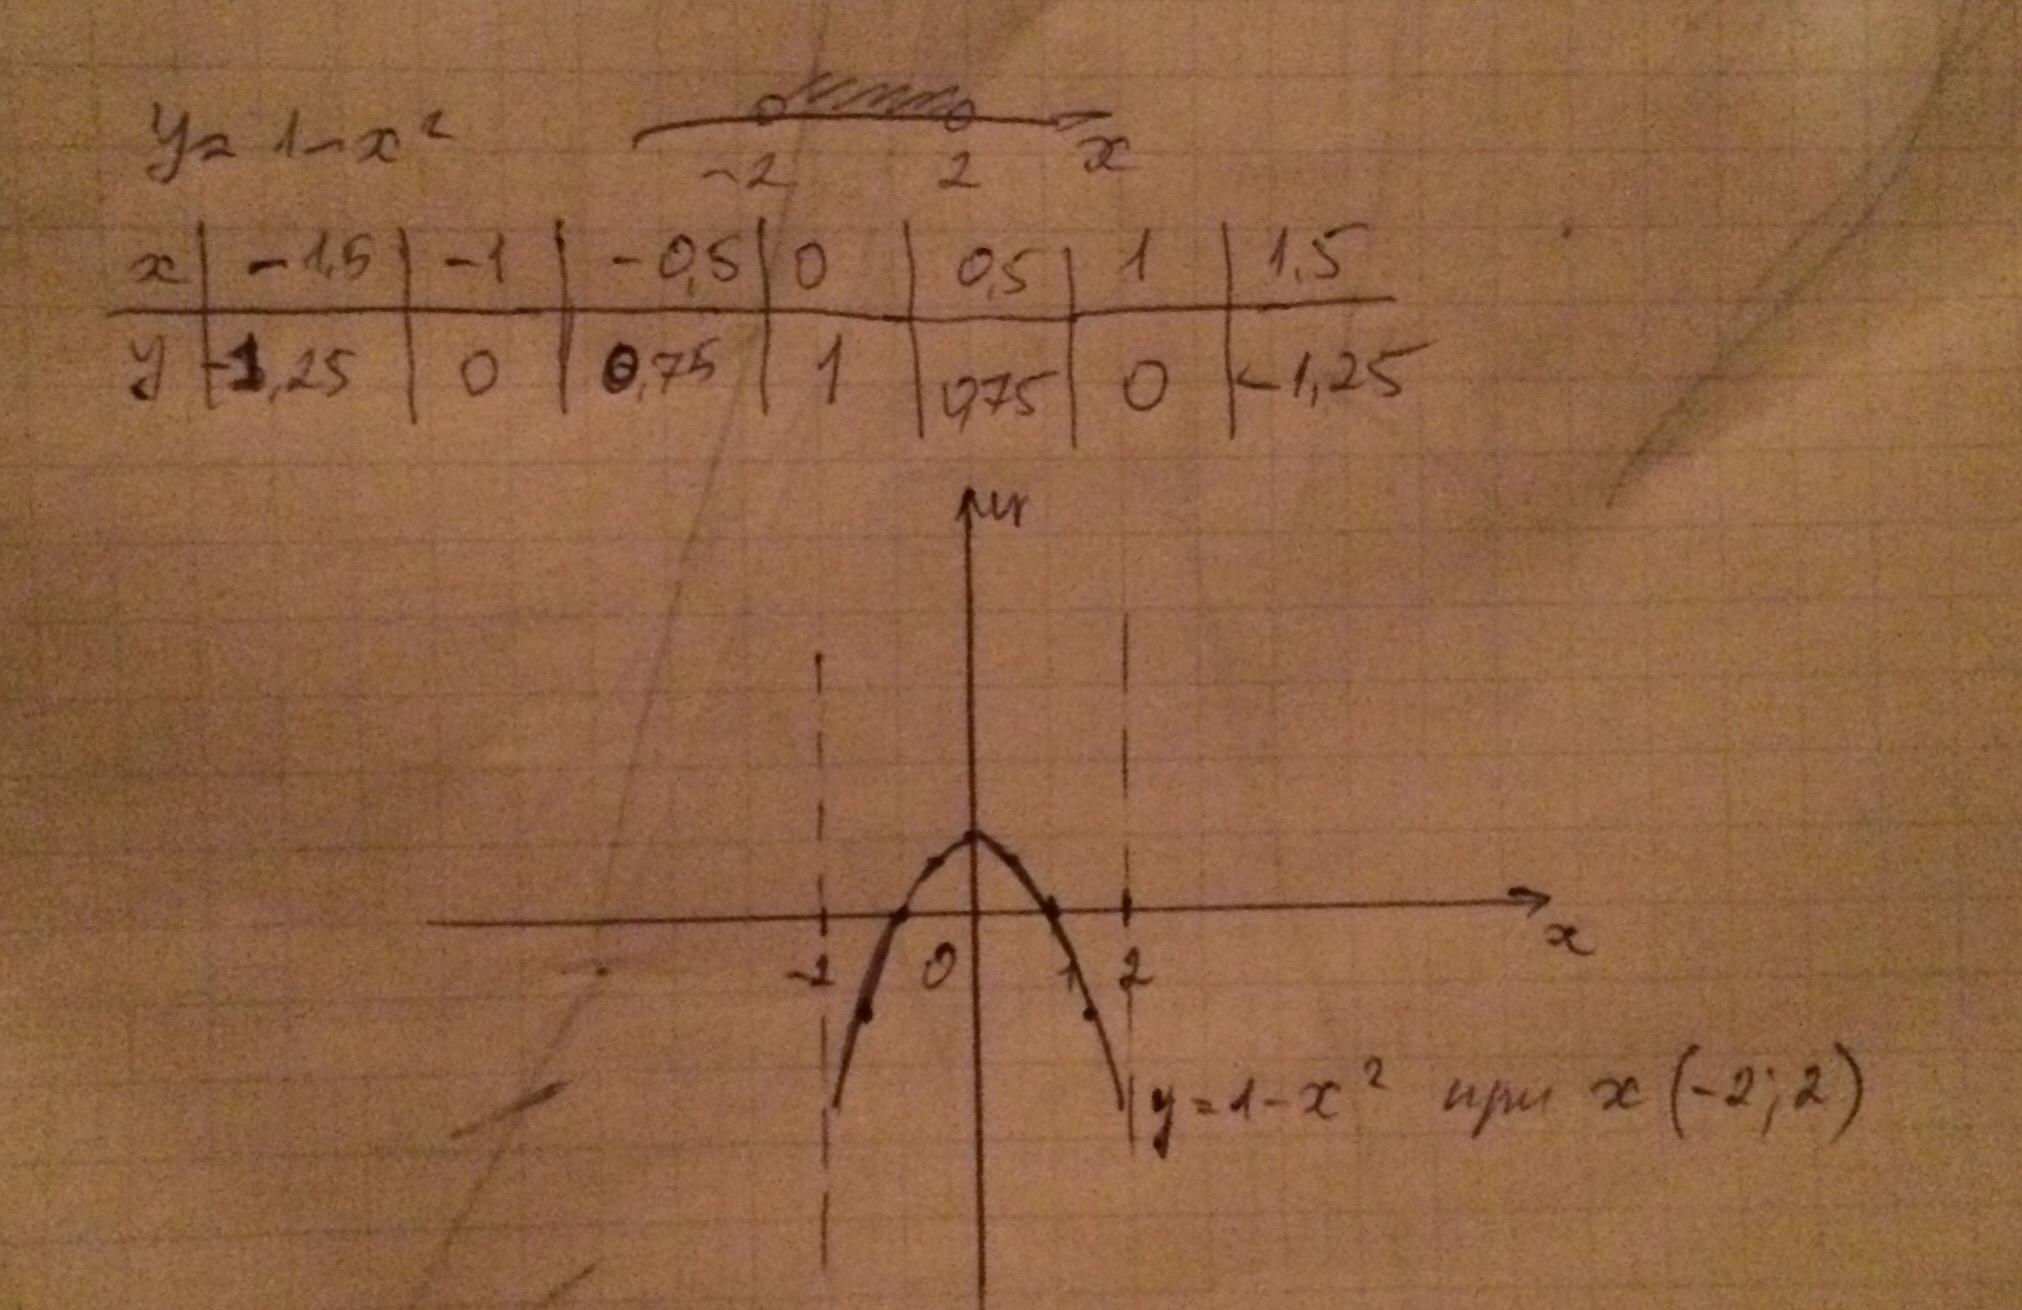 y = 1 - x²
-2 2 x
x | -1,5 | -1 | -0,5 | 0 | 0,5 | 1 | 1,5
y | -1,25 | 0 | 0,75 | 1 | 0,75 | 0 | -1,25
y
x
-2 0 1 2
y = 1 - x² при x (-2; 2)